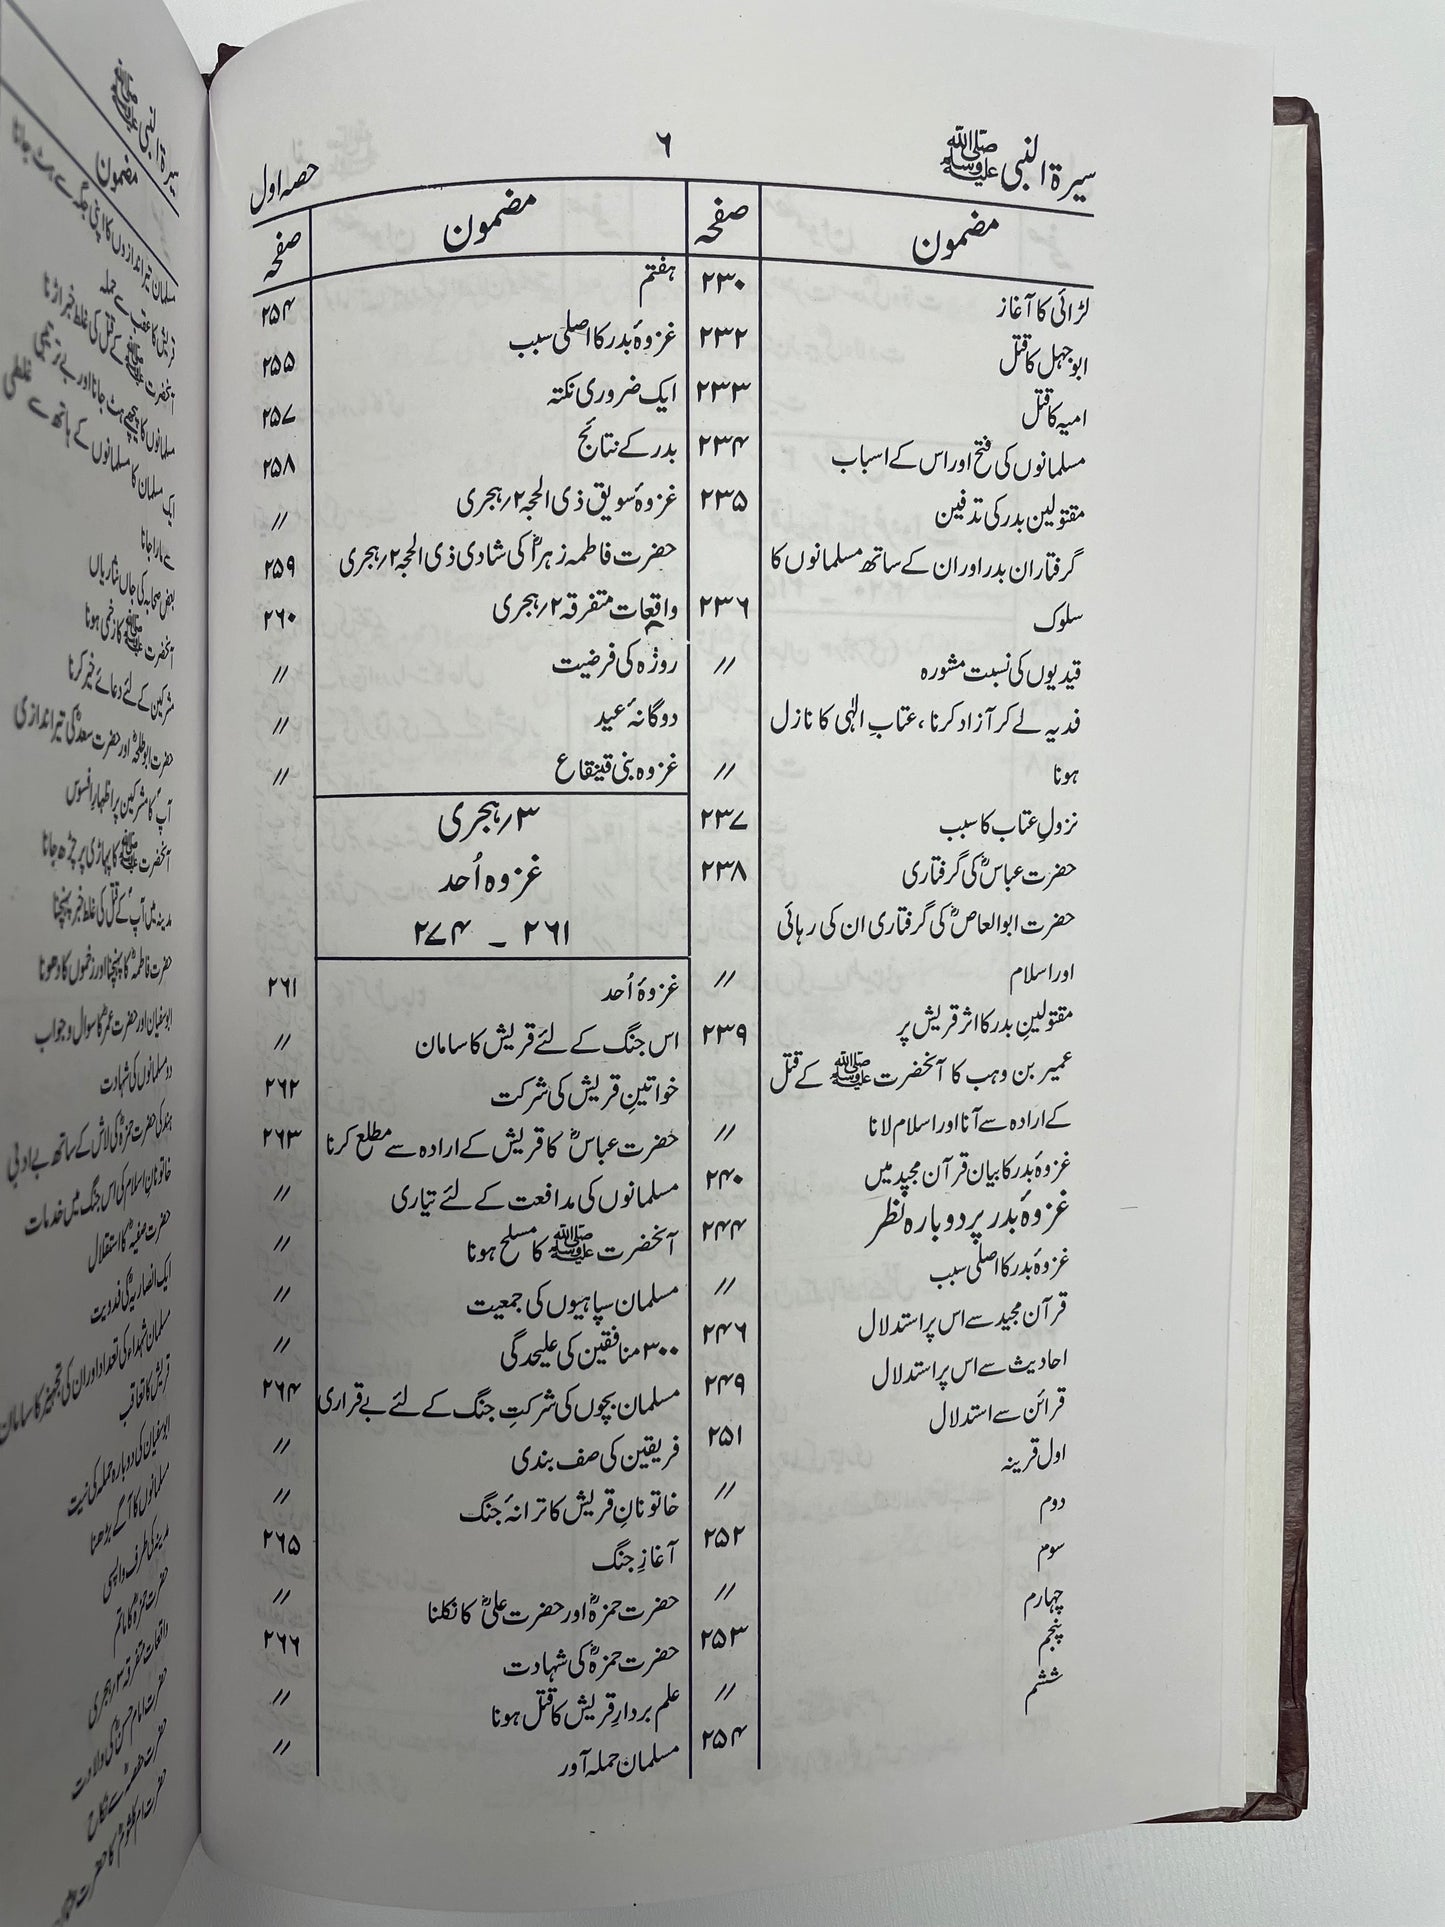 سیرۃ النبی ﷺ
۶
حصہ اول
مضمون
صفحہ
لڑائی کا آغاز
۲۳۰
ابو جہل کا قتل
۲۳۲
امیہ کا قتل
۲۳۳
مسلمانوں کی فتح اور اس کے اسباب
۲۳۴
مقتولین بدر کی تدفین
۲۳۵
گرفتاران بدر اور ان کے ساتھ مسلمانوں کا
سلوک
۲۳۶
قیدیوں کی نسبت مشورہ
〃
فدیہ لے کر آزاد کرنا، عتابِ الٰہی کا نازل
ہونا
〃
نزولِ عتاب کا سبب
۲۳۷
حضرت عباسؓ کی گرفتاری
۲۳۸
حضرت ابوالعاصؓ کی گرفتاری ان کی رہائی
اور اسلام
〃
مقتولینِ بدر کا اثر قریش پر
۲۳۹
عمیر بن وہب کا آنحضرت ﷺ کے قتل
کے ارادہ سے آنا اور اسلام لانا
〃
غزوہ بدر کا بیان قرآن مجید میں
۲۴۰
غزوۂ بدر پر دوبارہ نظر
۲۴۴
غزوۂ بدر کا اصلی سبب
〃
قرآن مجید سے اس پر استدلال
۲۴۶
احادیث سے اس پر استدلال
۲۴۹
قرائن سے استدلال
۲۵۱
اول قرینہ
〃
دوم
۲۵۲
سوم
〃
چہارم
۲۵۳
پنجم
〃
ششم
۲۵۴
مضمون
صفحہ
ہفتم
۲۵۴
غزوۂ بدر کا اصلی سبب
۲۵۵
ایک ضروری نکتہ
۲۵۷
بدر کے نتائج
۲۵۸
غزوۂ سویق ذی الحجہ ۲؍ہجری
〃
حضرت فاطمہ زہراؓ کی شادی ذی الحجہ ۲؍ہجری
۲۵۹
واقعات متفرقہ ۲؍ہجری
۲۶۰
روزہ کی فرضیت
〃
دوگانۂ عید
〃
غزوہ بنی قینقاع
〃
۳؍ہجری
غزوہ اُحد
۲۶۱ ۔ ۲۷۴
غزوۂ اُحد
۲۶۱
اس جنگ کے لئے قریش کا سامان
〃
خواتینِ قریش کی شرکت
۲۶۲
حضرت عباسؓ کا قریش کے ارادہ سے مطلع کرنا
۲۶۳
مسلمانوں کی مدافعت کے لئے تیاری
〃
آنحضرت ﷺ کا مسلح ہونا
〃
مسلمان سپاہیوں کی جمعیت
〃
۳۰۰ منافقین کی علیحدگی
〃
مسلمان بچوں کی شرکتِ جنگ کے لئے بے قراری
۲۶۴
فریقین کی صف بندی
〃
خاتونانِ قریش کا ترانۂ جنگ
〃
آغازِ جنگ
۲۶۵
حضرت حمزہؓ اور حضرت علیؓ کا نکلنا
〃
حضرت حمزہؓ کی شہادت
۲۶۶
علم بردارِ قریش کا قتل ہونا
〃
مسلمان حملہ آور
〃
سیرۃ النبی ﷺ
مضمون
مسلمان تیر اندازوں کا اپنی جگہ سے ہٹ جانا
قریش کا عقب سے حملہ
آنحضرت ﷺ کے قتل کی غلط خبر اڑنا
ایک مسلمان کا مسلمانوں کے ہاتھ سے غلطی
سے مارا جانا
بعض صحابہ کی جاں نثاریاں
آنحضرت ﷺ کا زخمی ہونا
مشرکین کے لئے دعائے خیر کرنا
حضرت ابو طلحہؓ اور حضرت سعدؓ کی تیر اندازی
آپ کا مشرکین پر اظہارِ افسوس
آنحضرت ﷺ کا پہاڑی پر چڑھ جانا
مدینہ میں آپؐ کے قتل کی غلط خبر پہنچنا
حضرت فاطمہؓ کا پہنچنا اور زخموں کا دھونا
ابو سفیان اور حضرت عمرؓ کا سوال و جواب
دو مسلمانوں کی شہادت
ہند کی حضرت حمزہؓ کی لاش کے ساتھ بے ادبی
خاتونانِ اسلام کی اس جنگ میں خدمات
حضرت صفیہؓ کا استقلال
ایک انصاریہ کی فدویت
مسلمان شہداء کی تعداد اور ان کی تجہیز کا سامان
قریش کا تعاقب
ابو سفیان کی دوبارہ حملہ کی نیت
مسلمانوں کا آگے بڑھنا
مدینہ کی طرف واپسی
حضرت حمزہؓ کا ماتم
واقعات متفرقہ ۳؍ہجری
حضرت امام حسنؓ کی ولادت
حضرت حفصہؓ سے نکاح